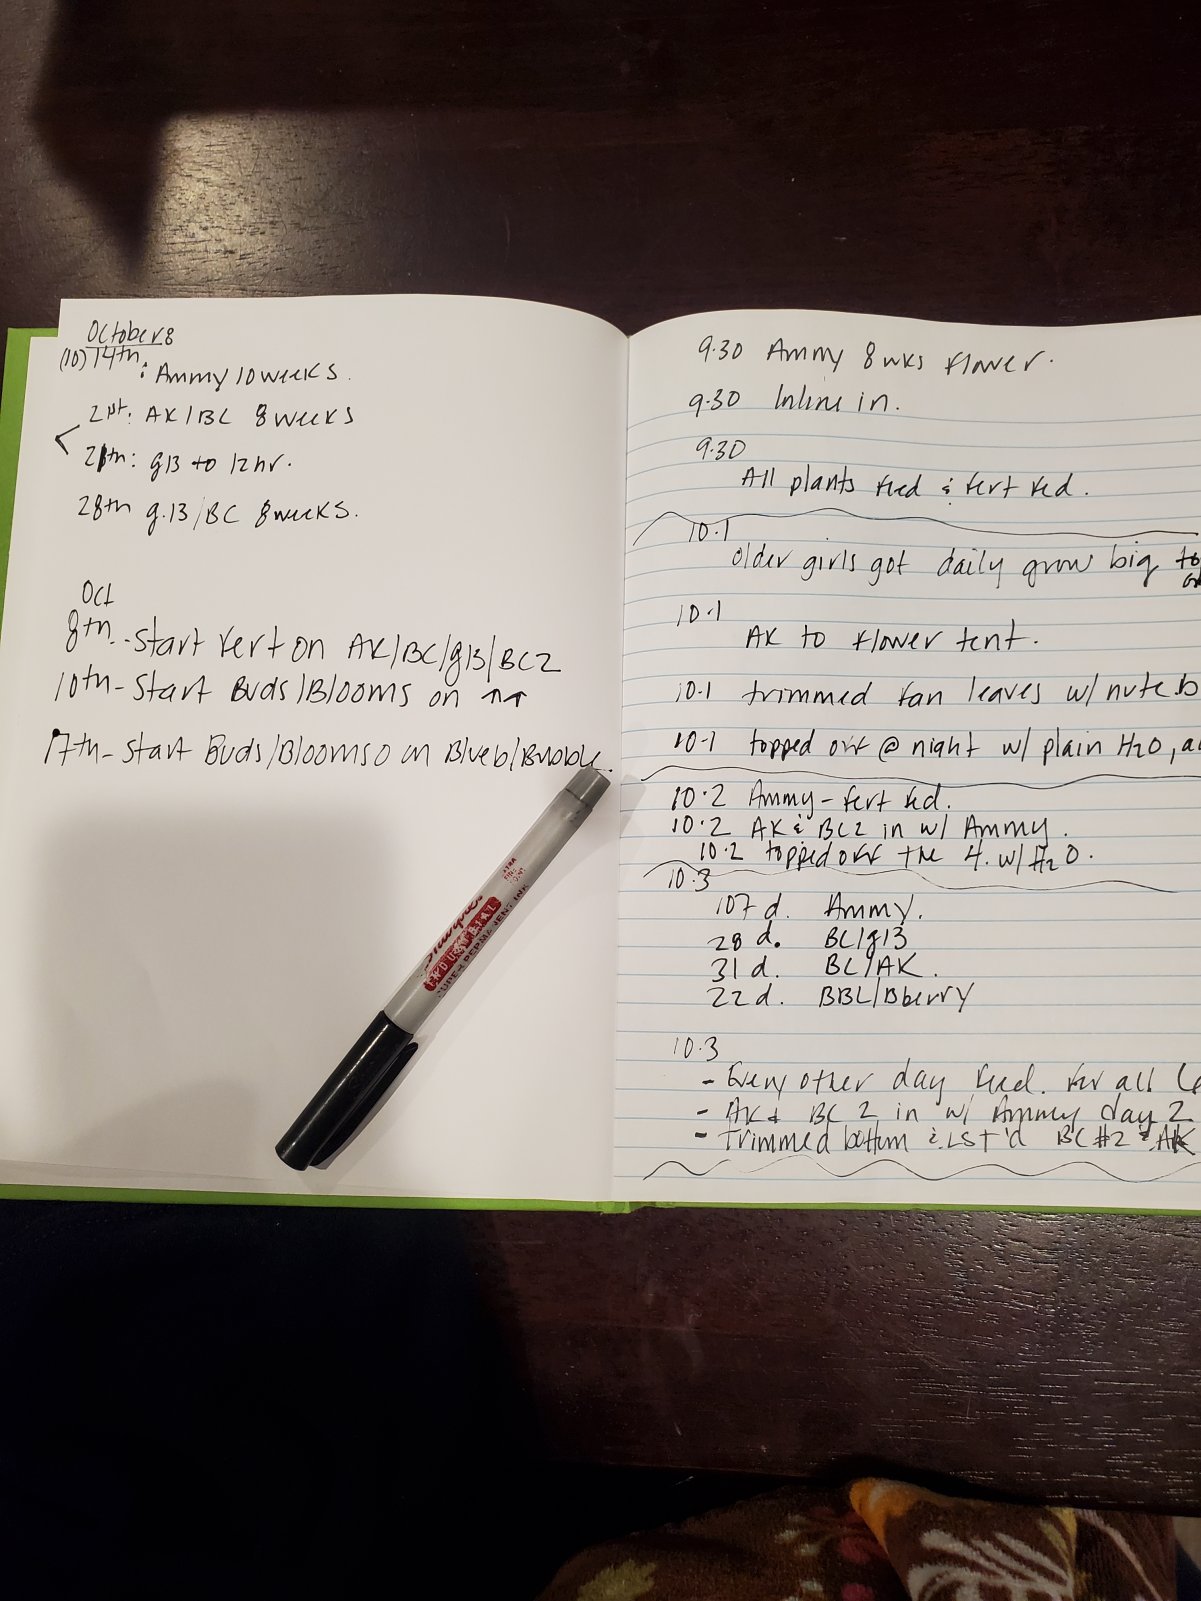 October 8
(10) 14th
: Ammy 10 weeks.
21st: AK/BC 8 weeks
21th: g13 to 12hr.
28th g.13/BC 8 weeks.
Oct
8th - Start Fert on AK/BC/g13/BC2
10th - Start Buds/Blooms on ↑↑
17th - Start Buds/Blooms on Blueb/Bubble.
Sharpie
INDUSTRIAL
SUPER PERMANENT INK
9.30 Ammy 8 wks flower.
9.30 Inline in.
9.30
All plants feed & fert fed.
10.1
Older girls got daily grow big
10.1
AK to flower tent.
10.1 trimmed fan leaves w/ nute b
10.1 topped off @ night w/ plain H2O,
10.2 Ammy - fert fed.
10.2 AK & BC2 in w/ Ammy.
10.2 topped off the 4. w/ H2O.
10.3
107 d. Ammy.
28 d. BC/g13
31 d. BC/AK.
22 d. BBL/Bberry
10.3
- Every other day feed. for all
- AK & BC 2 in w/ Ammy day 2
- Trimmed bottom & LST'd BC #2 & AK